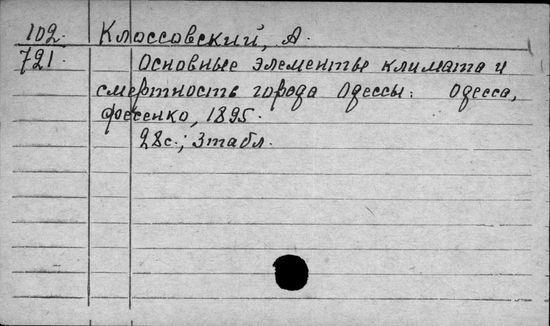 102. Клоссовский, А.
721. Основные элементы климата и
смертность города Одессы. Одесса,
Фесенко, 1895.
28с.; 3табл.